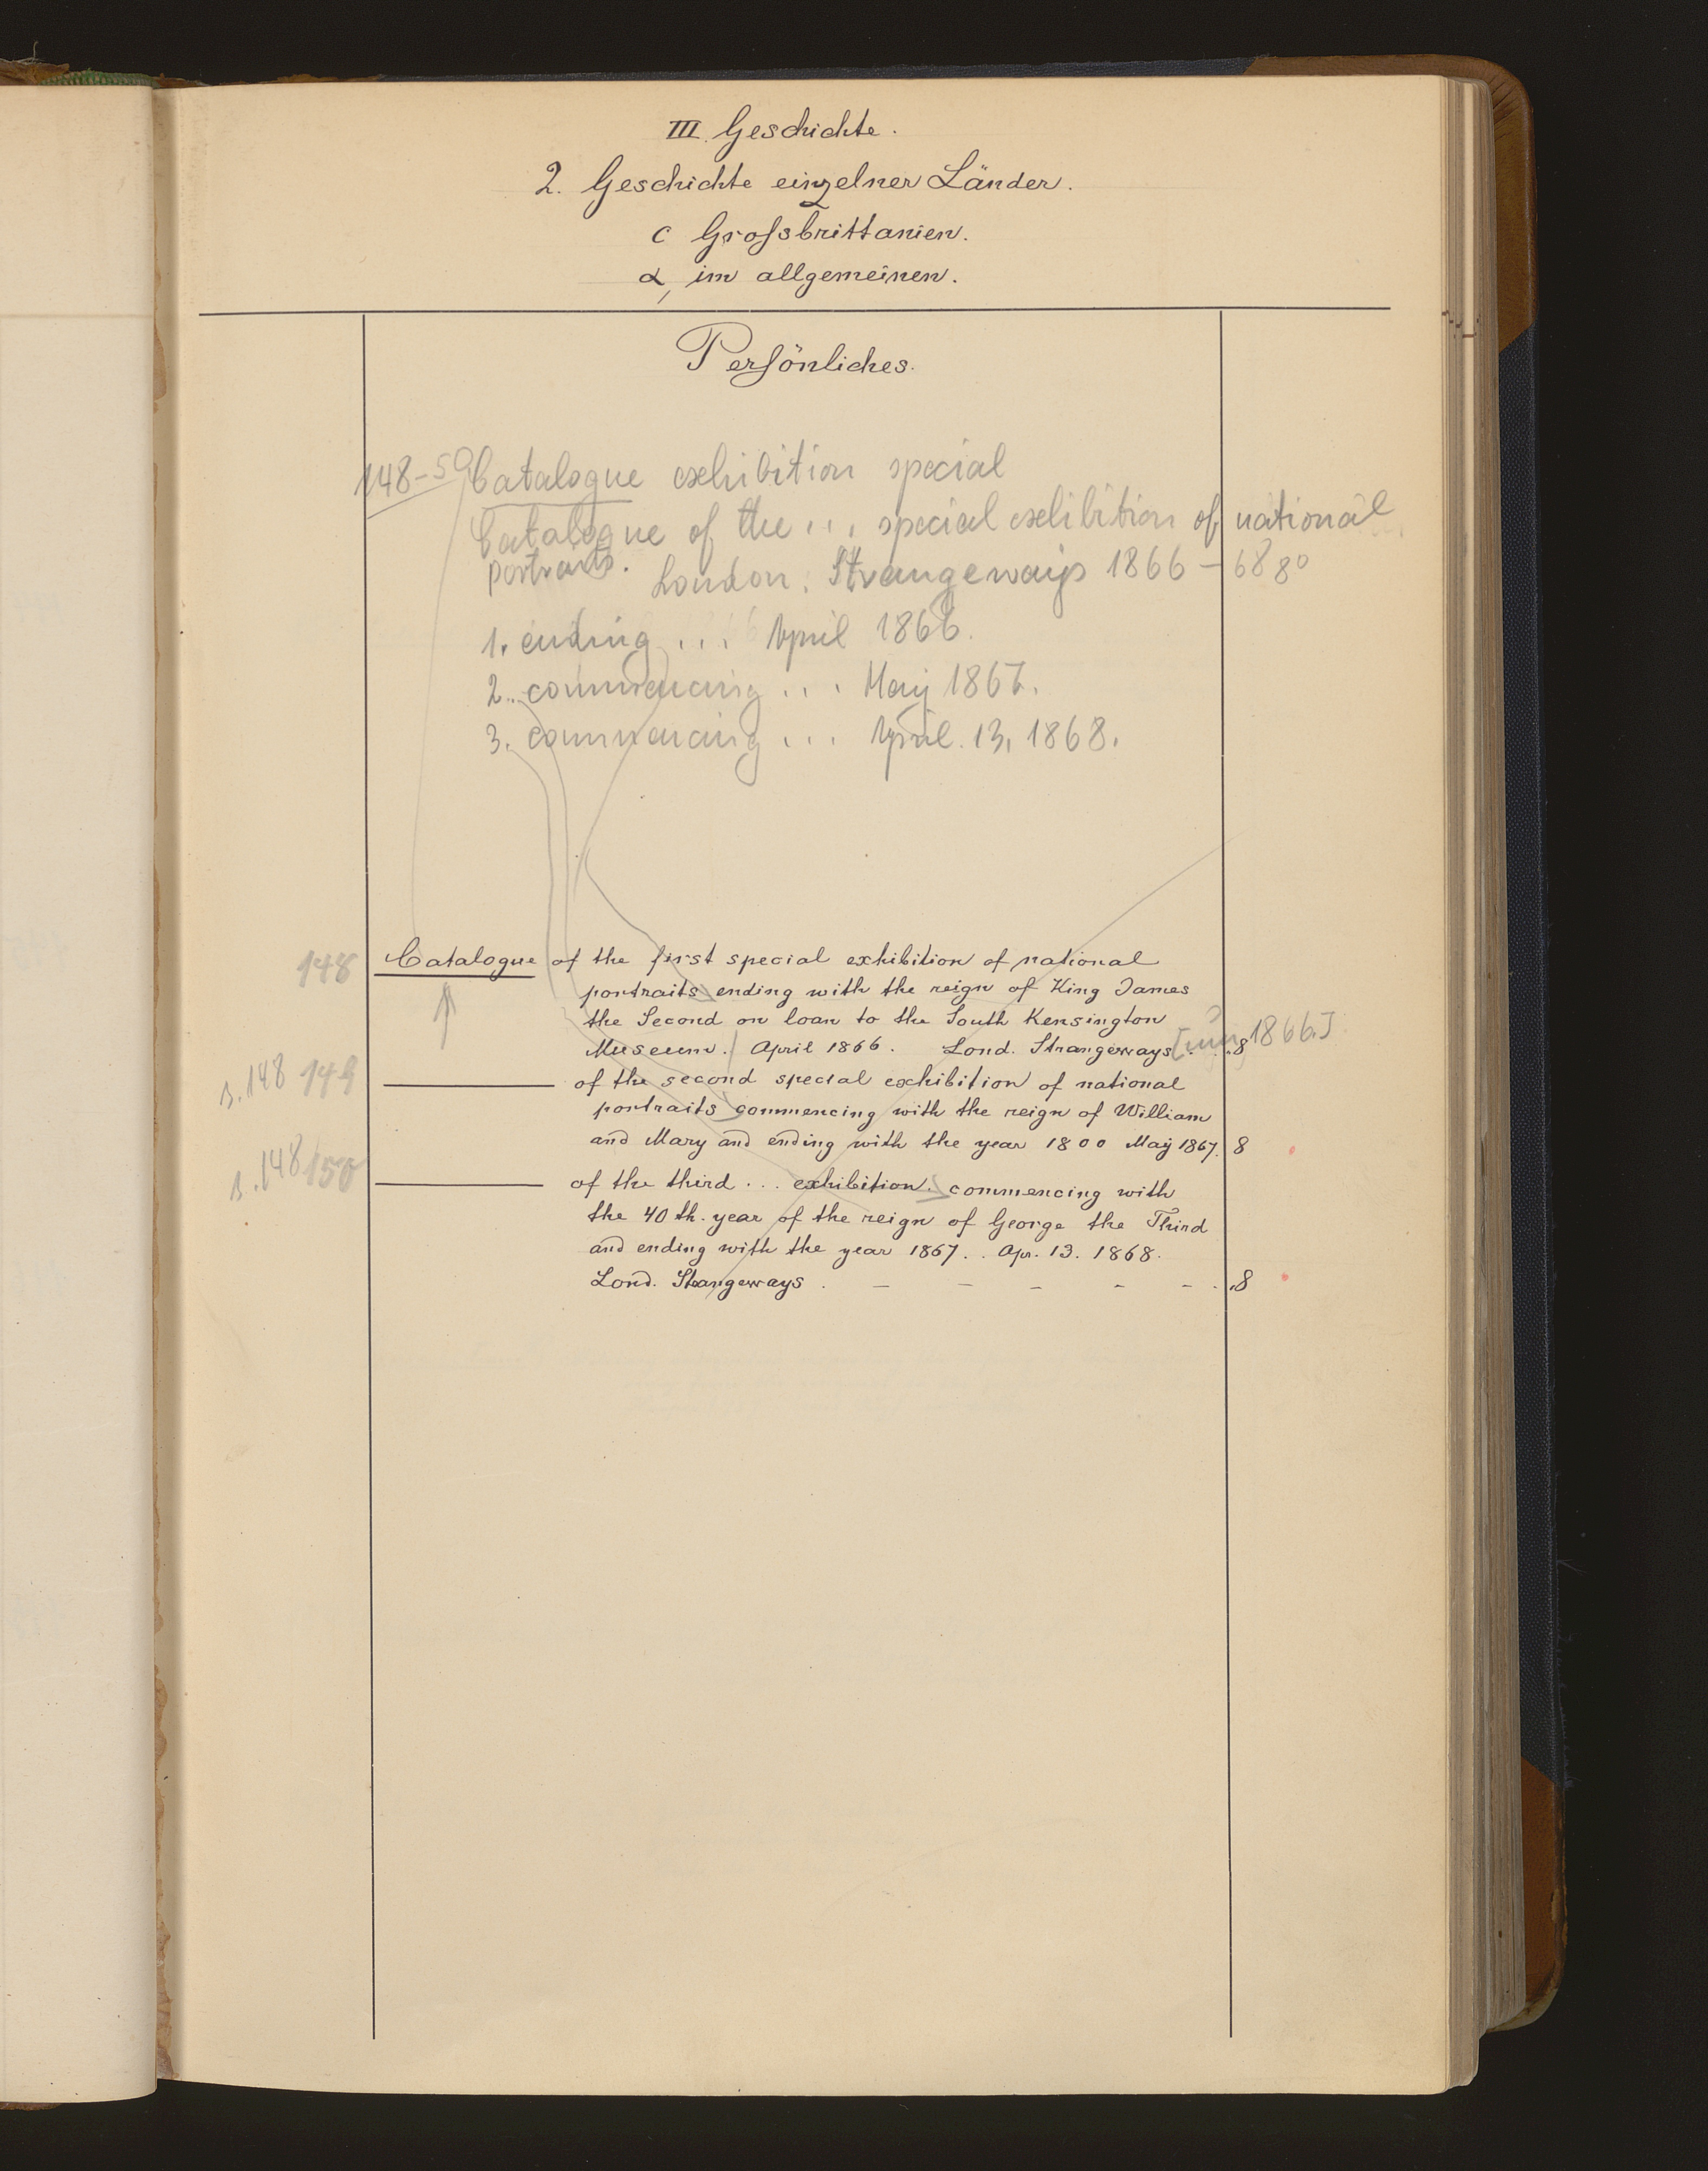 III. Geschichte.
2. Geschichte einzelner Länder.
c Großbrittanien.
α, im allgemeinen.
Persönliches.
148-50 Catalogue exhibition special
Catalogue of the ... special exhibition of national
portraits. London: Strangeways 1866-68 8°
1. ending ... April 1866.
2. commencing ... May 1867.
3. commencing ... April 13, 1868.
148 Catalogue of the first special exhibition of national
portraits ending with the reign of King James
the Second on loan to the South Kensington
Museum. April 1866. Lond. Strangeways 1866.] 8
B. 148 149 ——— of the second special exhibition of national
portraits commencing with the reign of William
and Mary and ending with the year 1800 May 1867. 8
B. 148 150 ——— of the third ... exhibition. commencing with
the 40th. year of the reign of George the Third
and ending with the year 1867. . Apr. 13. 1868.
Lond. Stangeways . – – – – – . 8